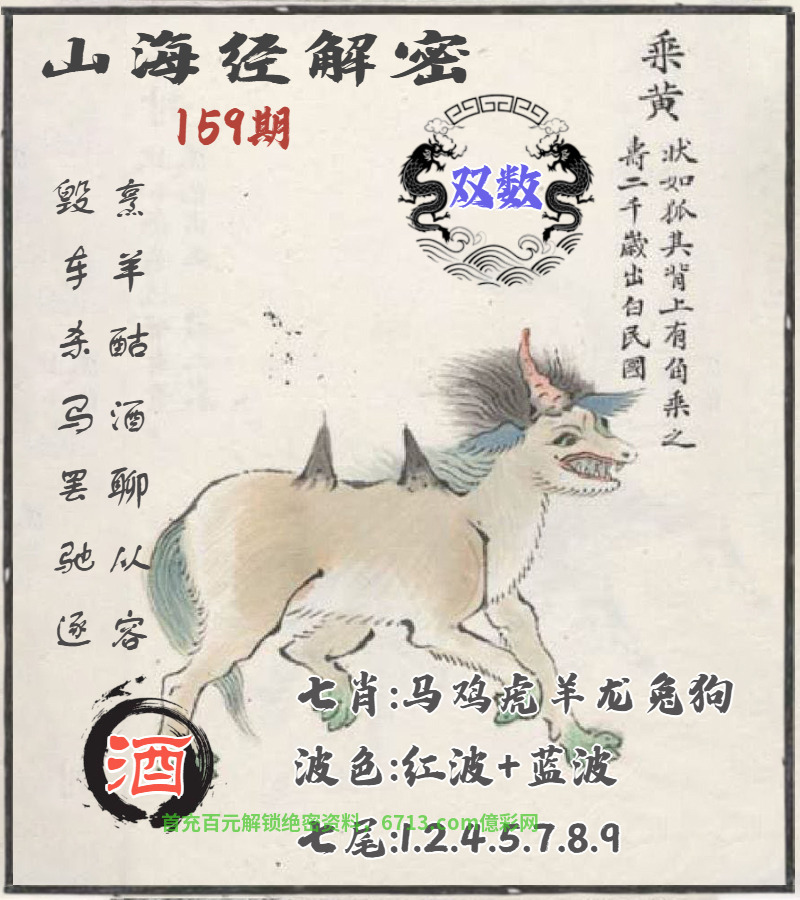 山海经解密
159期
乘黄
状如狐其背上有角乘之
寿二千歲出白民國
双数
烹羊酤酒聊从容
毁车杀马罢驰逐
七肖:马鸡虎羊龙兔狗
波色:红波+蓝波
酒
首充百元解锁绝密资料，6713.com億彩网
七尾:1.2.4.5.7.8.9